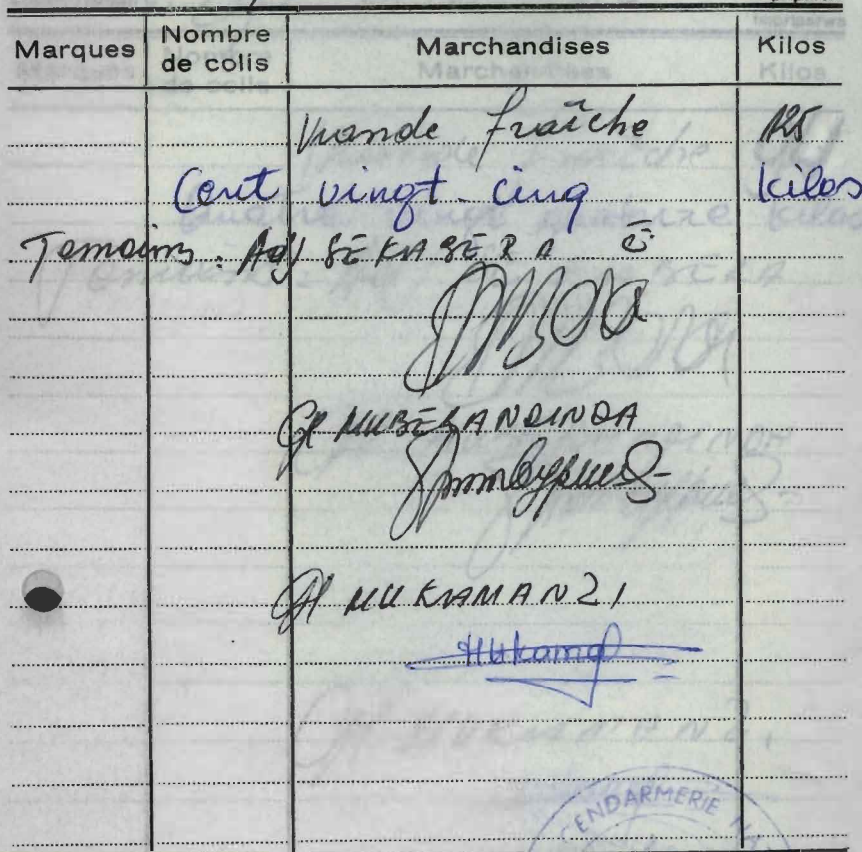 Marques Nombre de colis Marchandises Kilos
Viande fraîche 125
Cent vingt-cinq kilos
Temoins: Adj SEKAGERA
MUBERANDINDA
MUKAMANZI
GENDARMERIE NA